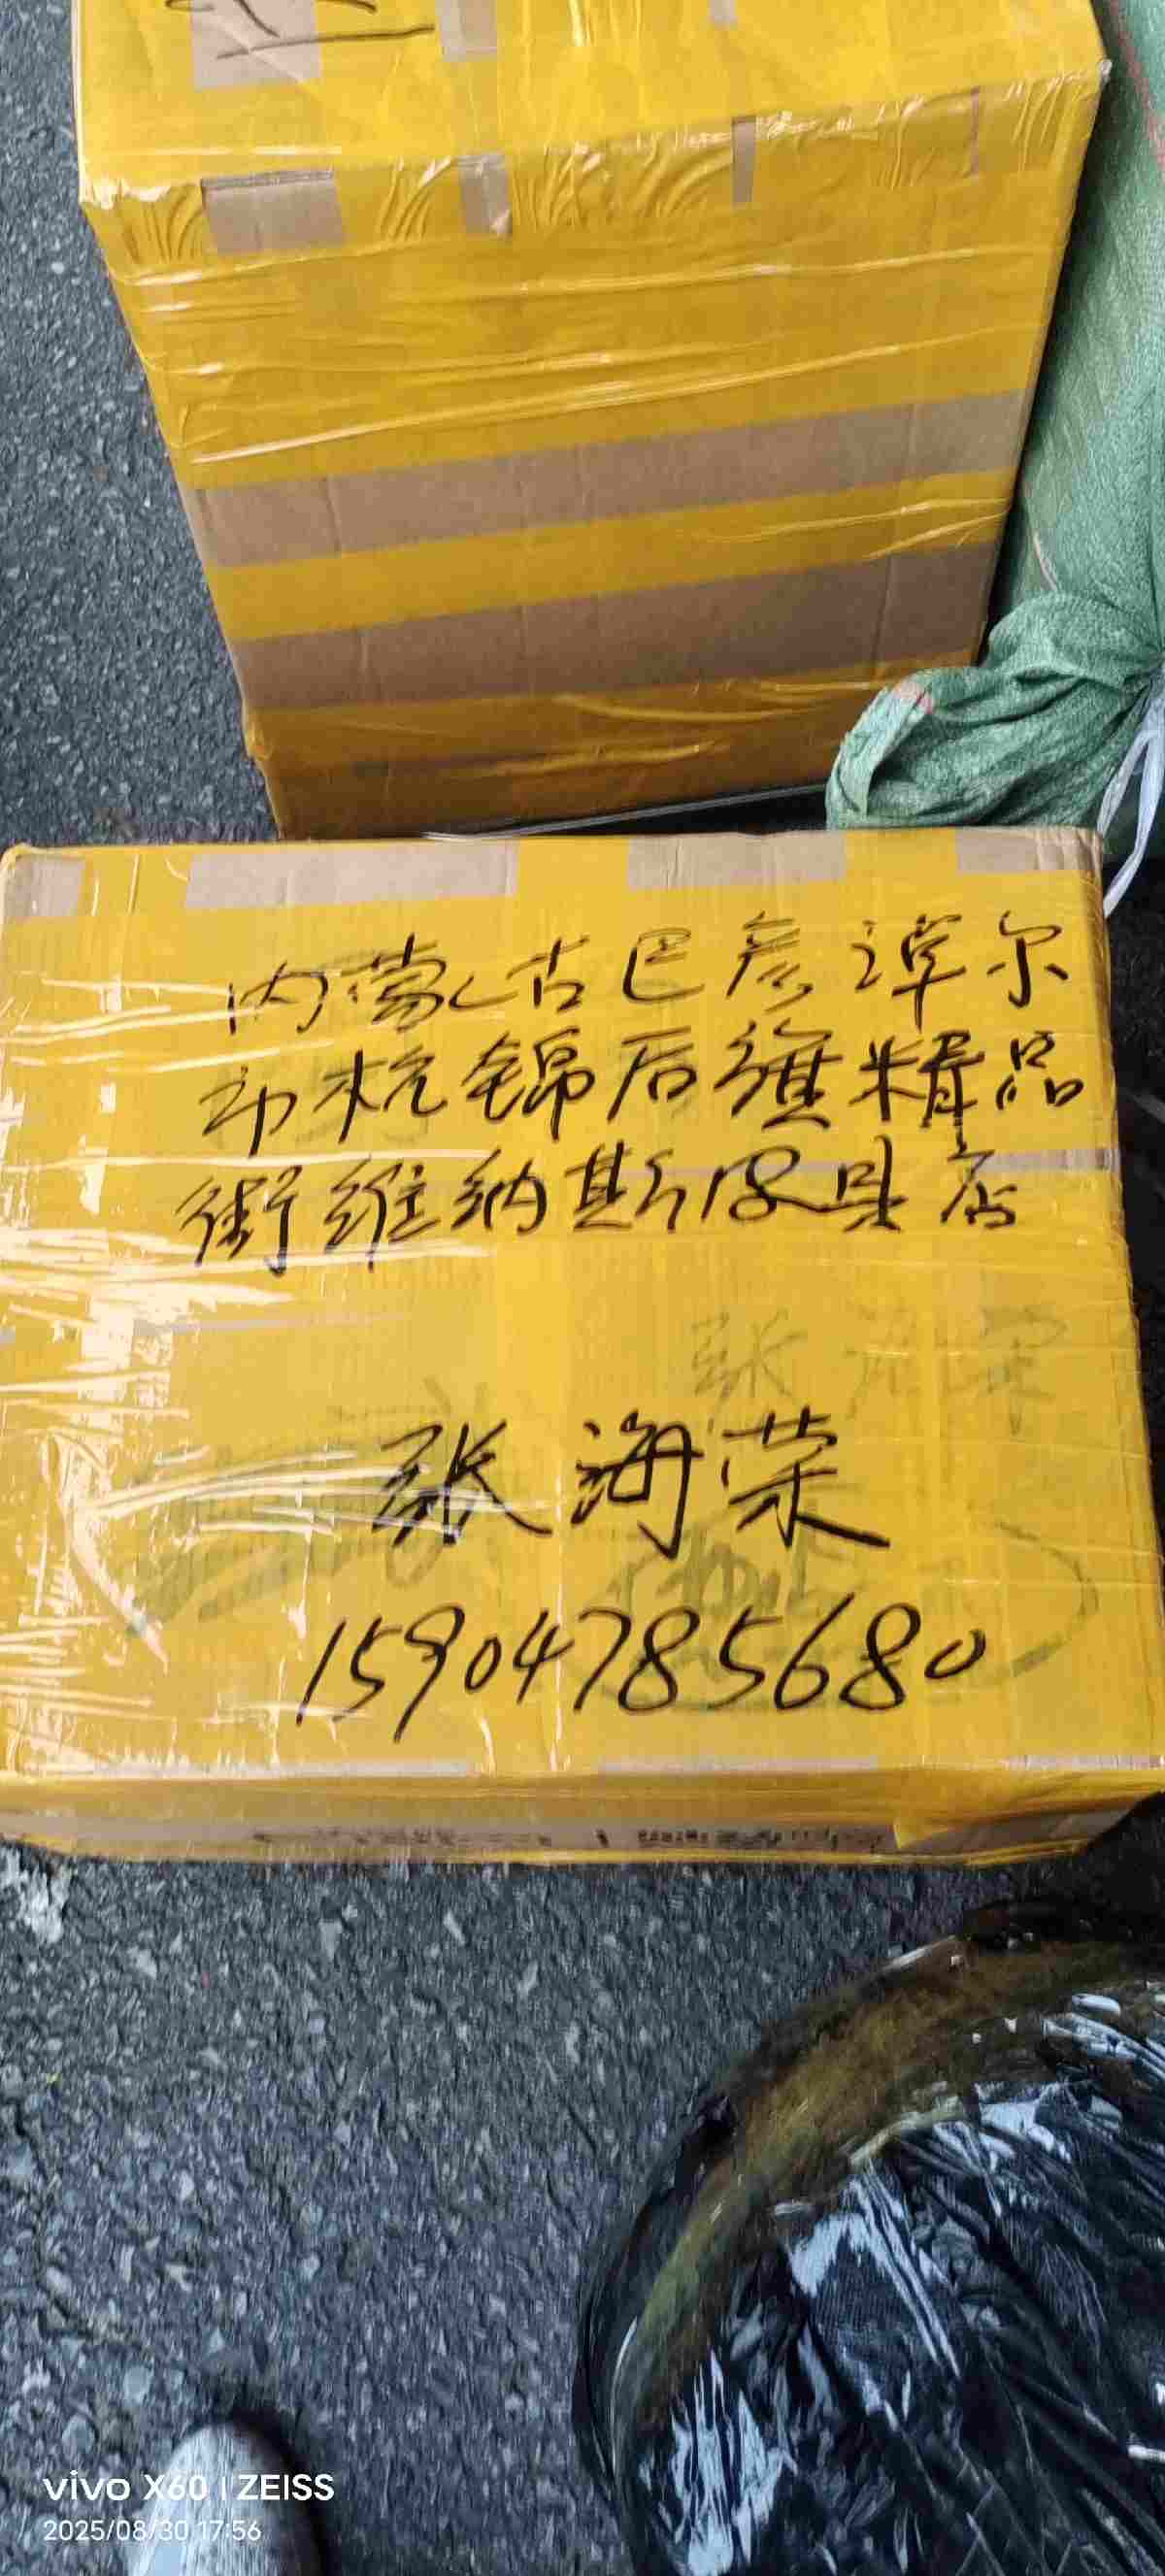 内蒙古巴彦淖尔
市杭锦后旗精品
街维纳斯皮具店
张海荣
15904785680
vivo X60 | ZEISS
2025/08/30 17:56